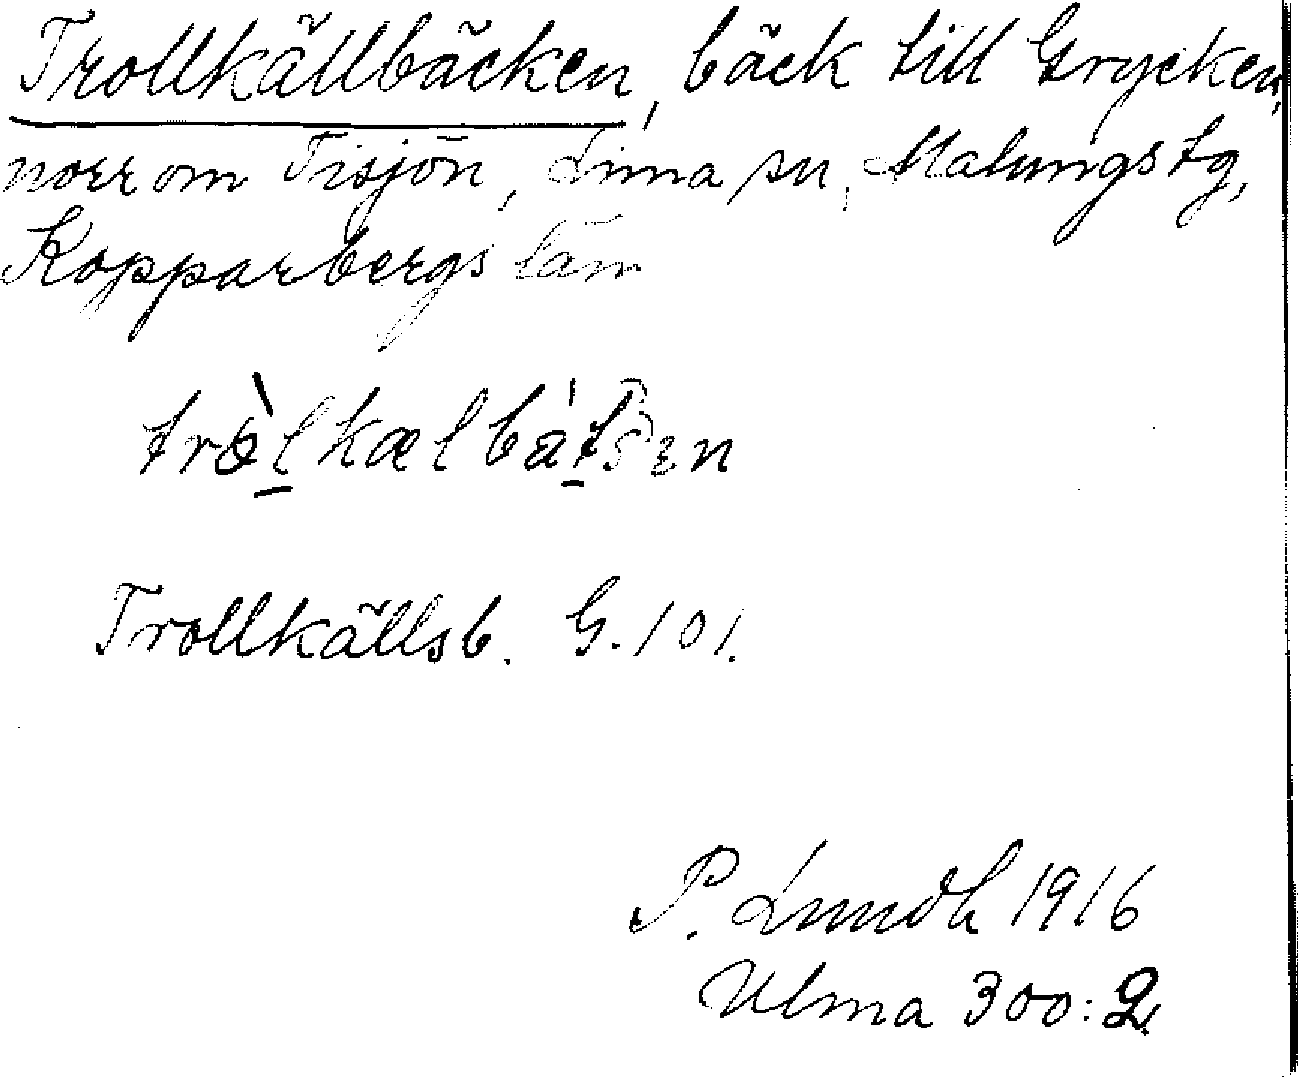 Trollkällbäcken, bäck till Grycken,
norr om Tisjön, Lima sn, Malungs tg,
Kopparbergs län
Trollkällsb. G. 101.
P. Lundh 1916
Ulma 300:2